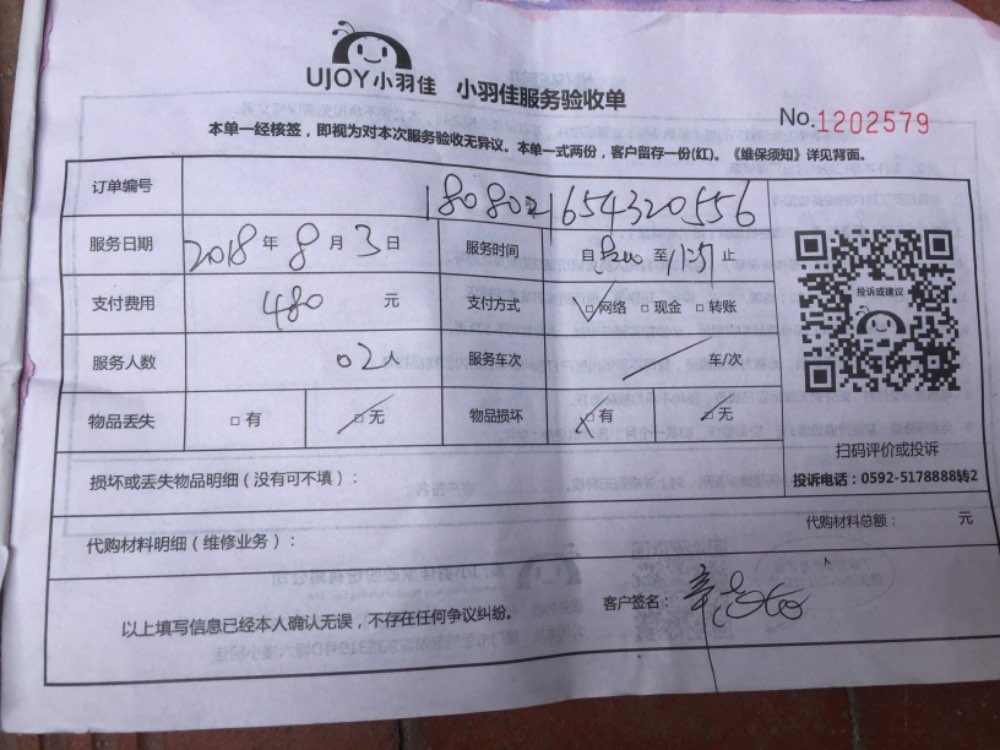 UJOY小羽佳 小羽佳服务验收单
No.1202579
本单一经核签，即视为对本次服务验收无异议。本单一式两份，客户留存一份(红)。《维保须知》详见背面。
订单编号 1808021654320556
服务日期 2018年8月3日 服务时间 自8:00至11:51止
支付费用 480 元 支付方式 □网络 □现金 □转账
服务人数 02人 服务车次 车/次
物品丢失 □有 □无 物品损坏 □有 □无
投诉或建议
扫码评价或投诉
投诉电话：0592-5178888转2
损坏或丢失物品明细（没有可不填）：
代购材料明细（维修业务）： 代购材料总额： 元
以上填写信息已经本人确认无误，不存在任何争议纠纷。 客户签名：